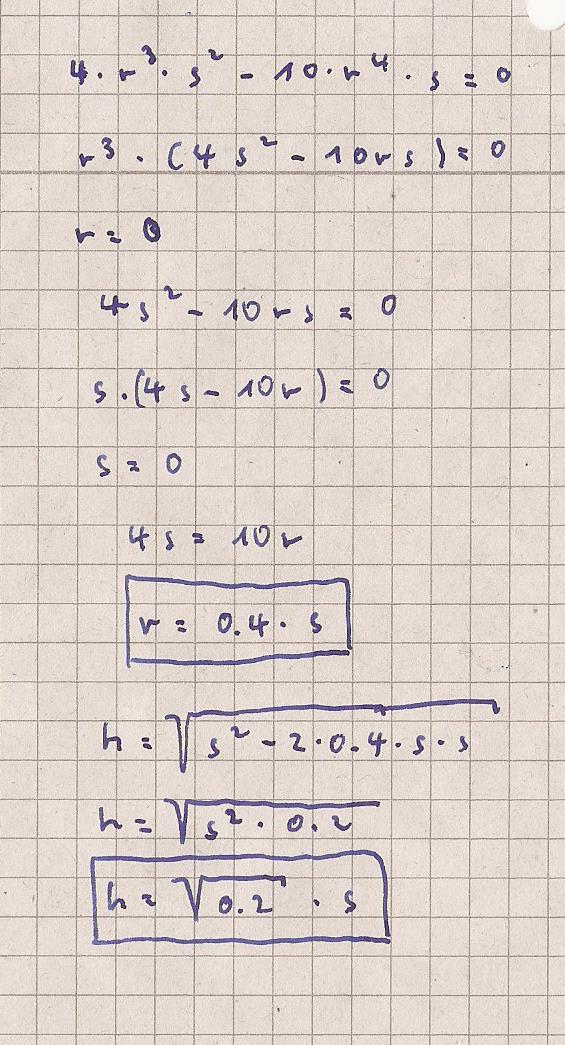 4 · r³ · s² - 10 · r⁴ · s = 0
r³ · (4s² - 10rs) = 0
r = 0
4s² - 10rs = 0
s · (4s - 10r) = 0
s = 0
4s = 10r
r = 0.4 · s
h = √(s² - 2 · 0.4 · s · s)
h = √(s² · 0.2)
h = √0.2 · s